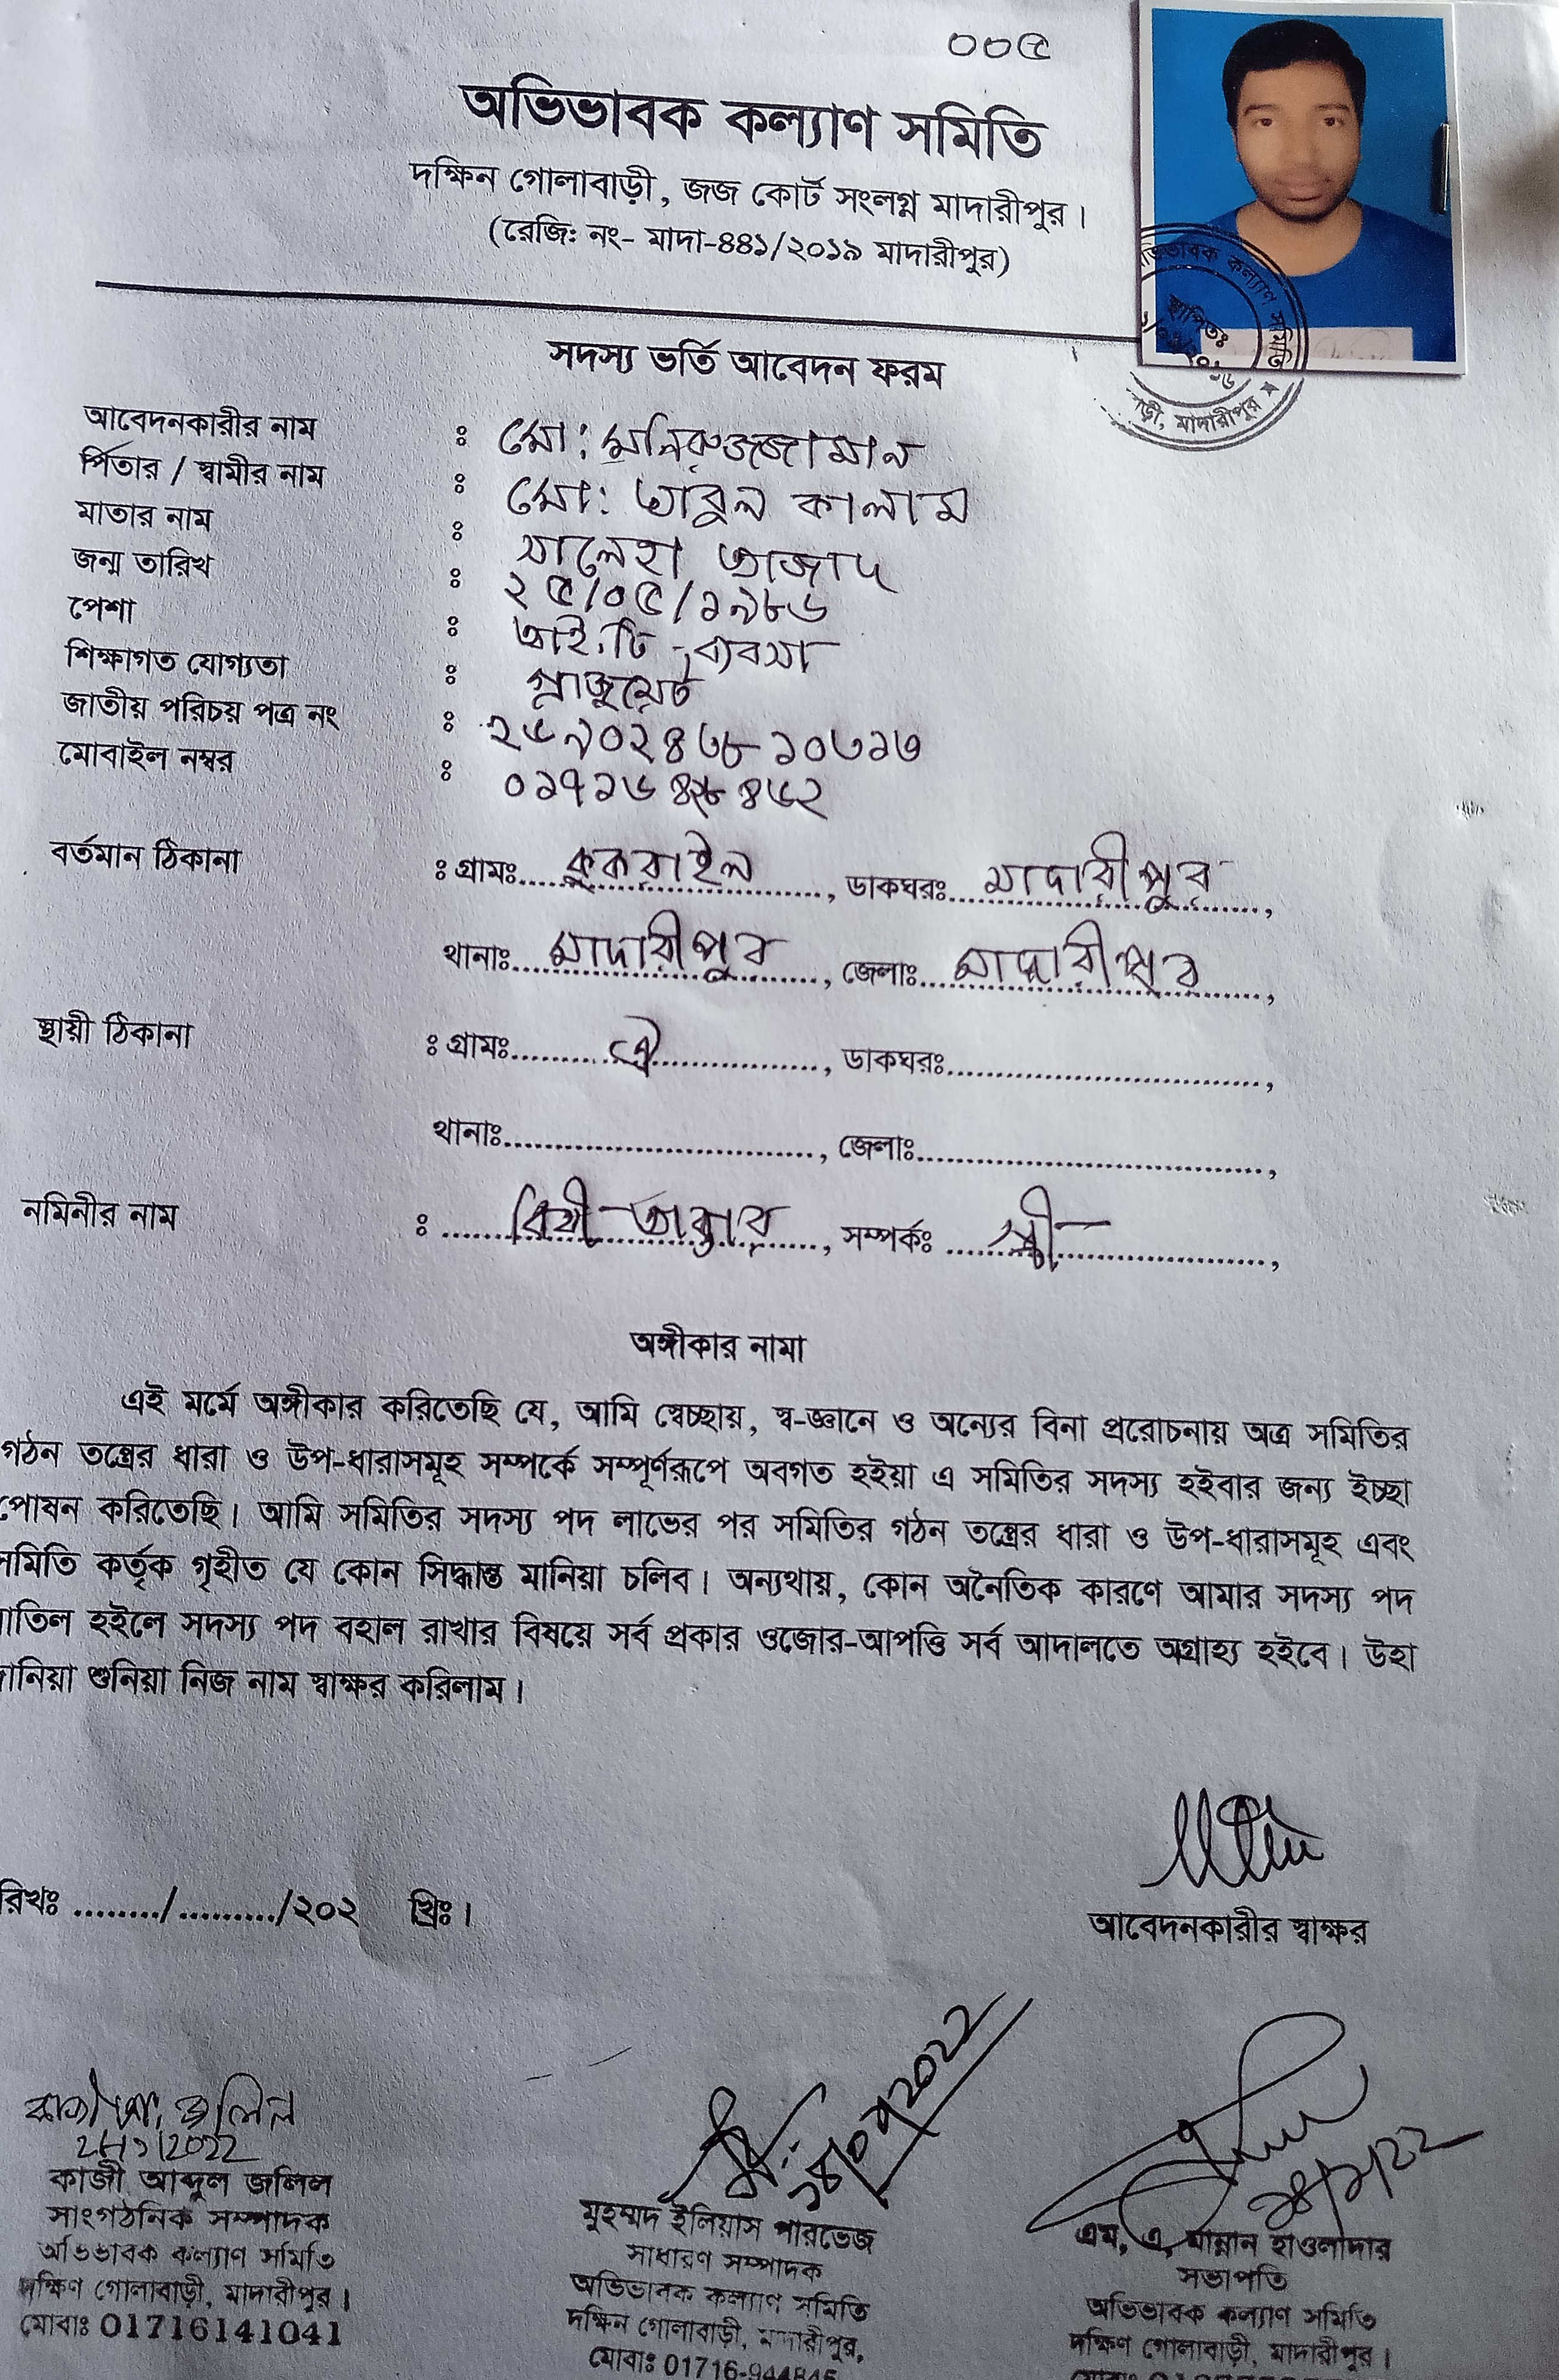 ০০৫
অভিভাবক কল্যাণ সমিতি
দক্ষিন গোলাবাড়ী, জজ কোর্ট সংলগ্ন মাদারীপুর।
(রেজি: নং- মাদা-৪৪১/২০১৯ মাদারীপুর)
অভিভাবক কল্যাণ সমিতি
স্থাপিতঃ
মাদারীপুর
সদস্য ভর্তি আবেদন ফরম
আবেদনকারীর নাম : মো: মনিরুজ্জামান
পিতার / স্বামীর নাম : মো: আবুল কালাম
মাতার নাম : সালেহা আজাদ
জন্ম তারিখ : ২৫/০৫/১৯৮৬
পেশা : আই.টি - ব্যবসা
শিক্ষাগত যোগ্যতা : গ্রাজুয়েট
জাতীয় পরিচয় পত্র নং :
মোবাইল নম্বর :
বর্তমান ঠিকানা : গ্রামঃ কুকরাইল, ডাকঘরঃ মাদারীপুর,
থানাঃ মাদারীপুর, জেলাঃ মাদারীপুর,
স্থায়ী ঠিকানা : গ্রামঃ ঐ, ডাকঘরঃ,
থানাঃ, জেলাঃ,
নমিনীর নাম : আক্তার, সম্পর্কঃ স্ত্রী,
অঙ্গীকার নামা
এই মর্মে অঙ্গীকার করিতেছি যে, আমি স্বেচ্ছায়, স্ব-জ্ঞানে ও অন্যের বিনা প্ররোচনায় অত্র সমিতির
গঠন তন্ত্রের ধারা ও উপ-ধারাসমূহ সম্পর্কে সম্পূর্ণরূপে অবগত হইয়া এ সমিতির সদস্য হইবার জন্য ইচ্ছা
পোষন করিতেছি। আমি সমিতির সদস্য পদ লাভের পর সমিতির গঠন তন্ত্রের ধারা ও উপ-ধারাসমূহ এবং
সমিতি কর্তৃক গৃহীত যে কোন সিদ্ধান্ত মানিয়া চলিব। অন্যথায়, কোন অনৈতিক কারণে আমার সদস্য পদ
বাতিল হইলে সদস্য পদ বহাল রাখার বিষয়ে সর্ব প্রকার ওজোর-আপত্তি সর্ব আদালতে অগ্রাহ্য হইবে। উহা
জানিয়া শুনিয়া নিজ নাম স্বাক্ষর করিলাম।
রিখঃ ........./........../২০২ খ্রিঃ।
আবেদনকারীর স্বাক্ষর
জলিল
কাজী আব্দুল জলিল
সাংগঠনিক সম্পাদক
অভিভাবক কল্যাণ সমিতি
দক্ষিণ গোলাবাড়ী, মাদারীপুর।
মোবাঃ 01716141041
মুহম্মদ ইলিয়াস পারভেজ
সাধারণ সম্পাদক
অভিভাবক কল্যাণ সমিতি
দক্ষিন গোলাবাড়ী, মাদারীপুর,
মোবাঃ 01716-944845
এম, এ, মান্নান হাওলাদার
সভাপতি
অভিভাবক কল্যাণ সমিতি
দক্ষিণ গোলাবাড়ী, মাদারীপুর।